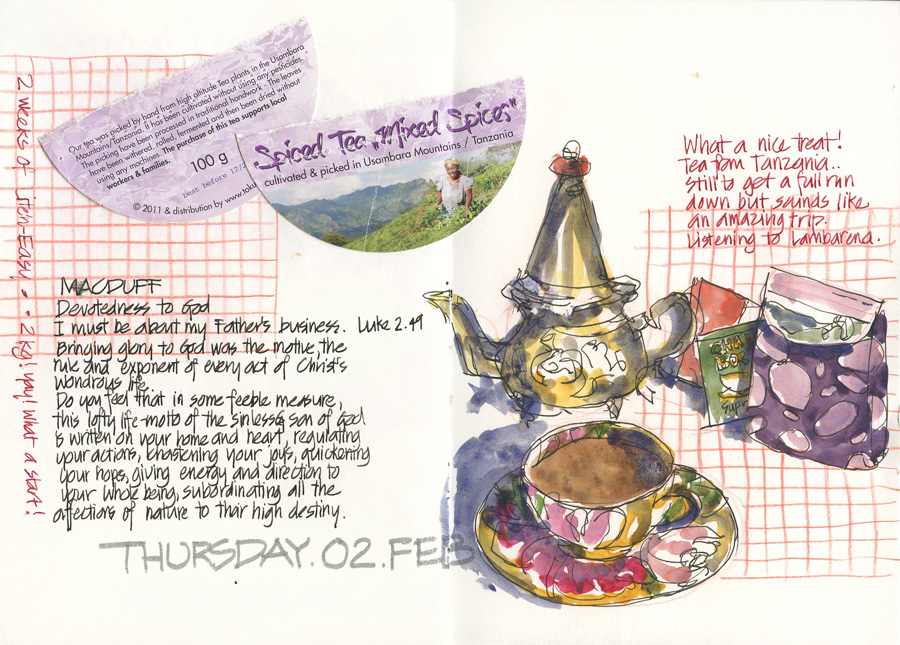 2 weeks of Stein-Easy - 2kg! yay! what a start!
Our tea was picked by hand from high altitude Tea plants in the Usambara
Mountains/Tanzania. It has been cultivated without using any pesticides.
The picking have been processed in traditional handwork - The leaves
have been withered, rolled, fermented and then been dried without
using any machines. The purchase of this tea supports local
workers & families.
100 g
best before 12/
© 2011 & distribution by www.
Spiced Tea „Mixed Spices"
cultivated & picked in Usambara Mountains / Tanzania
MACDUFF
Devotedness to God
I must be about my Father's business. Luke 2.49
Bringing glory to God was the motive, the
rule and exponent of every act of Christ's
wondrous life.
Do you feel that in some feeble measure,
this lofty life-motto of the sinless son of God
is written on your home and heart, regulating
your actions, chastening your joys, quickening
your hops, giving energy and direction to
your whole being, subordinating all the
affections of nature to their high destiny.
THURSDAY.02.FEB
What a nice treat!
Tea from Tanzania..
Still to get a full run
down but sounds like
an amazing trip.
Listening to Lambarena.